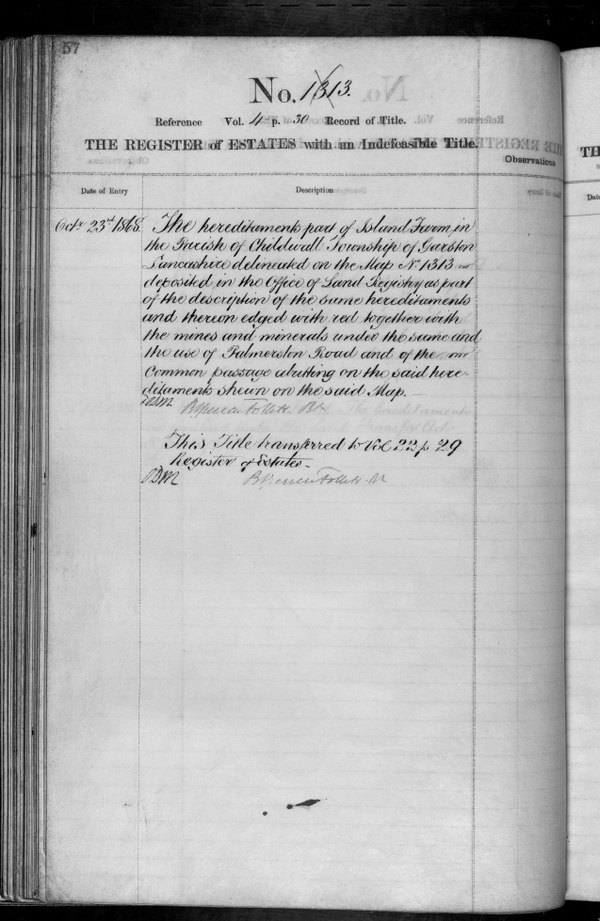 57
No. 1313.
Reference Vol. 4 p. 30 Record of Title.
THE REGISTER of ESTATES with an Indefeasible Title.
Observations
Date of Entry
Description
Octr 23rd 1868.
The hereditaments part of Island Farm in
the Parish of Childwall Township of Garston
Lancashire delineated on the Map No 1313
deposited in the Office of Land Registry as part
of the description of the same hereditaments
and thereon edged with red together with
the mines and minerals under the same and
the use of Palmerston Road and of the
Common passage abutting on the said here-
ditaments shewn on the said Map.
Brent Spencer Follett
This Title transferred to Vol 22 p 29
Register of Estates.
TH
Date